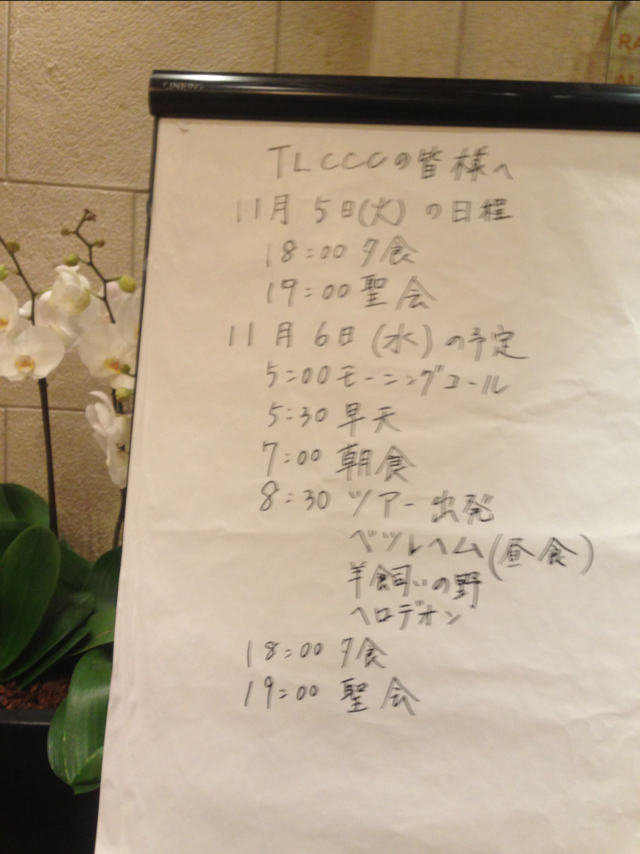 TLCCCの皆様へ
11月5日(火)の日程
18:00 夕食
19:00 聖会
11月6日(水)の予定
5:00 モーニングコール
5:30 早天
7:00 朝食
8:30 ツアー出発
ベツレヘム(昼食)
羊飼いの野
ヘロデオン
18:00 夕食
19:00 聖会